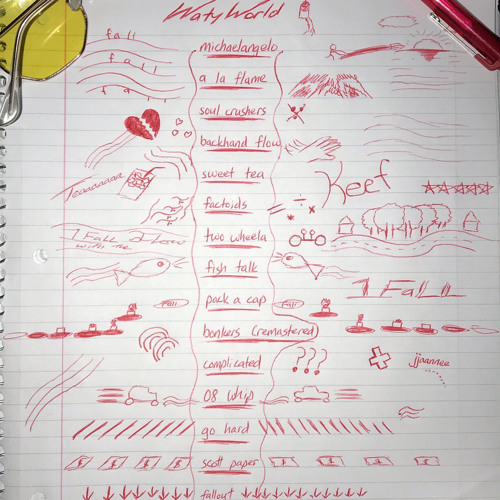 Waty World
fall
michaelangelo
fall
a la flame
fall
soul crushers
backhand flow
sweet tea
Keef
Teaaaaaaa
factoids
1 Fall 2 Flow
with me
two wheela
fish talk
1 FaLL
pack a cap
Fall
Fall
bonkers (remastered)
complicated
???
jjaannee
08 whip
go hard
$ $ $ $
scott paper
fallout